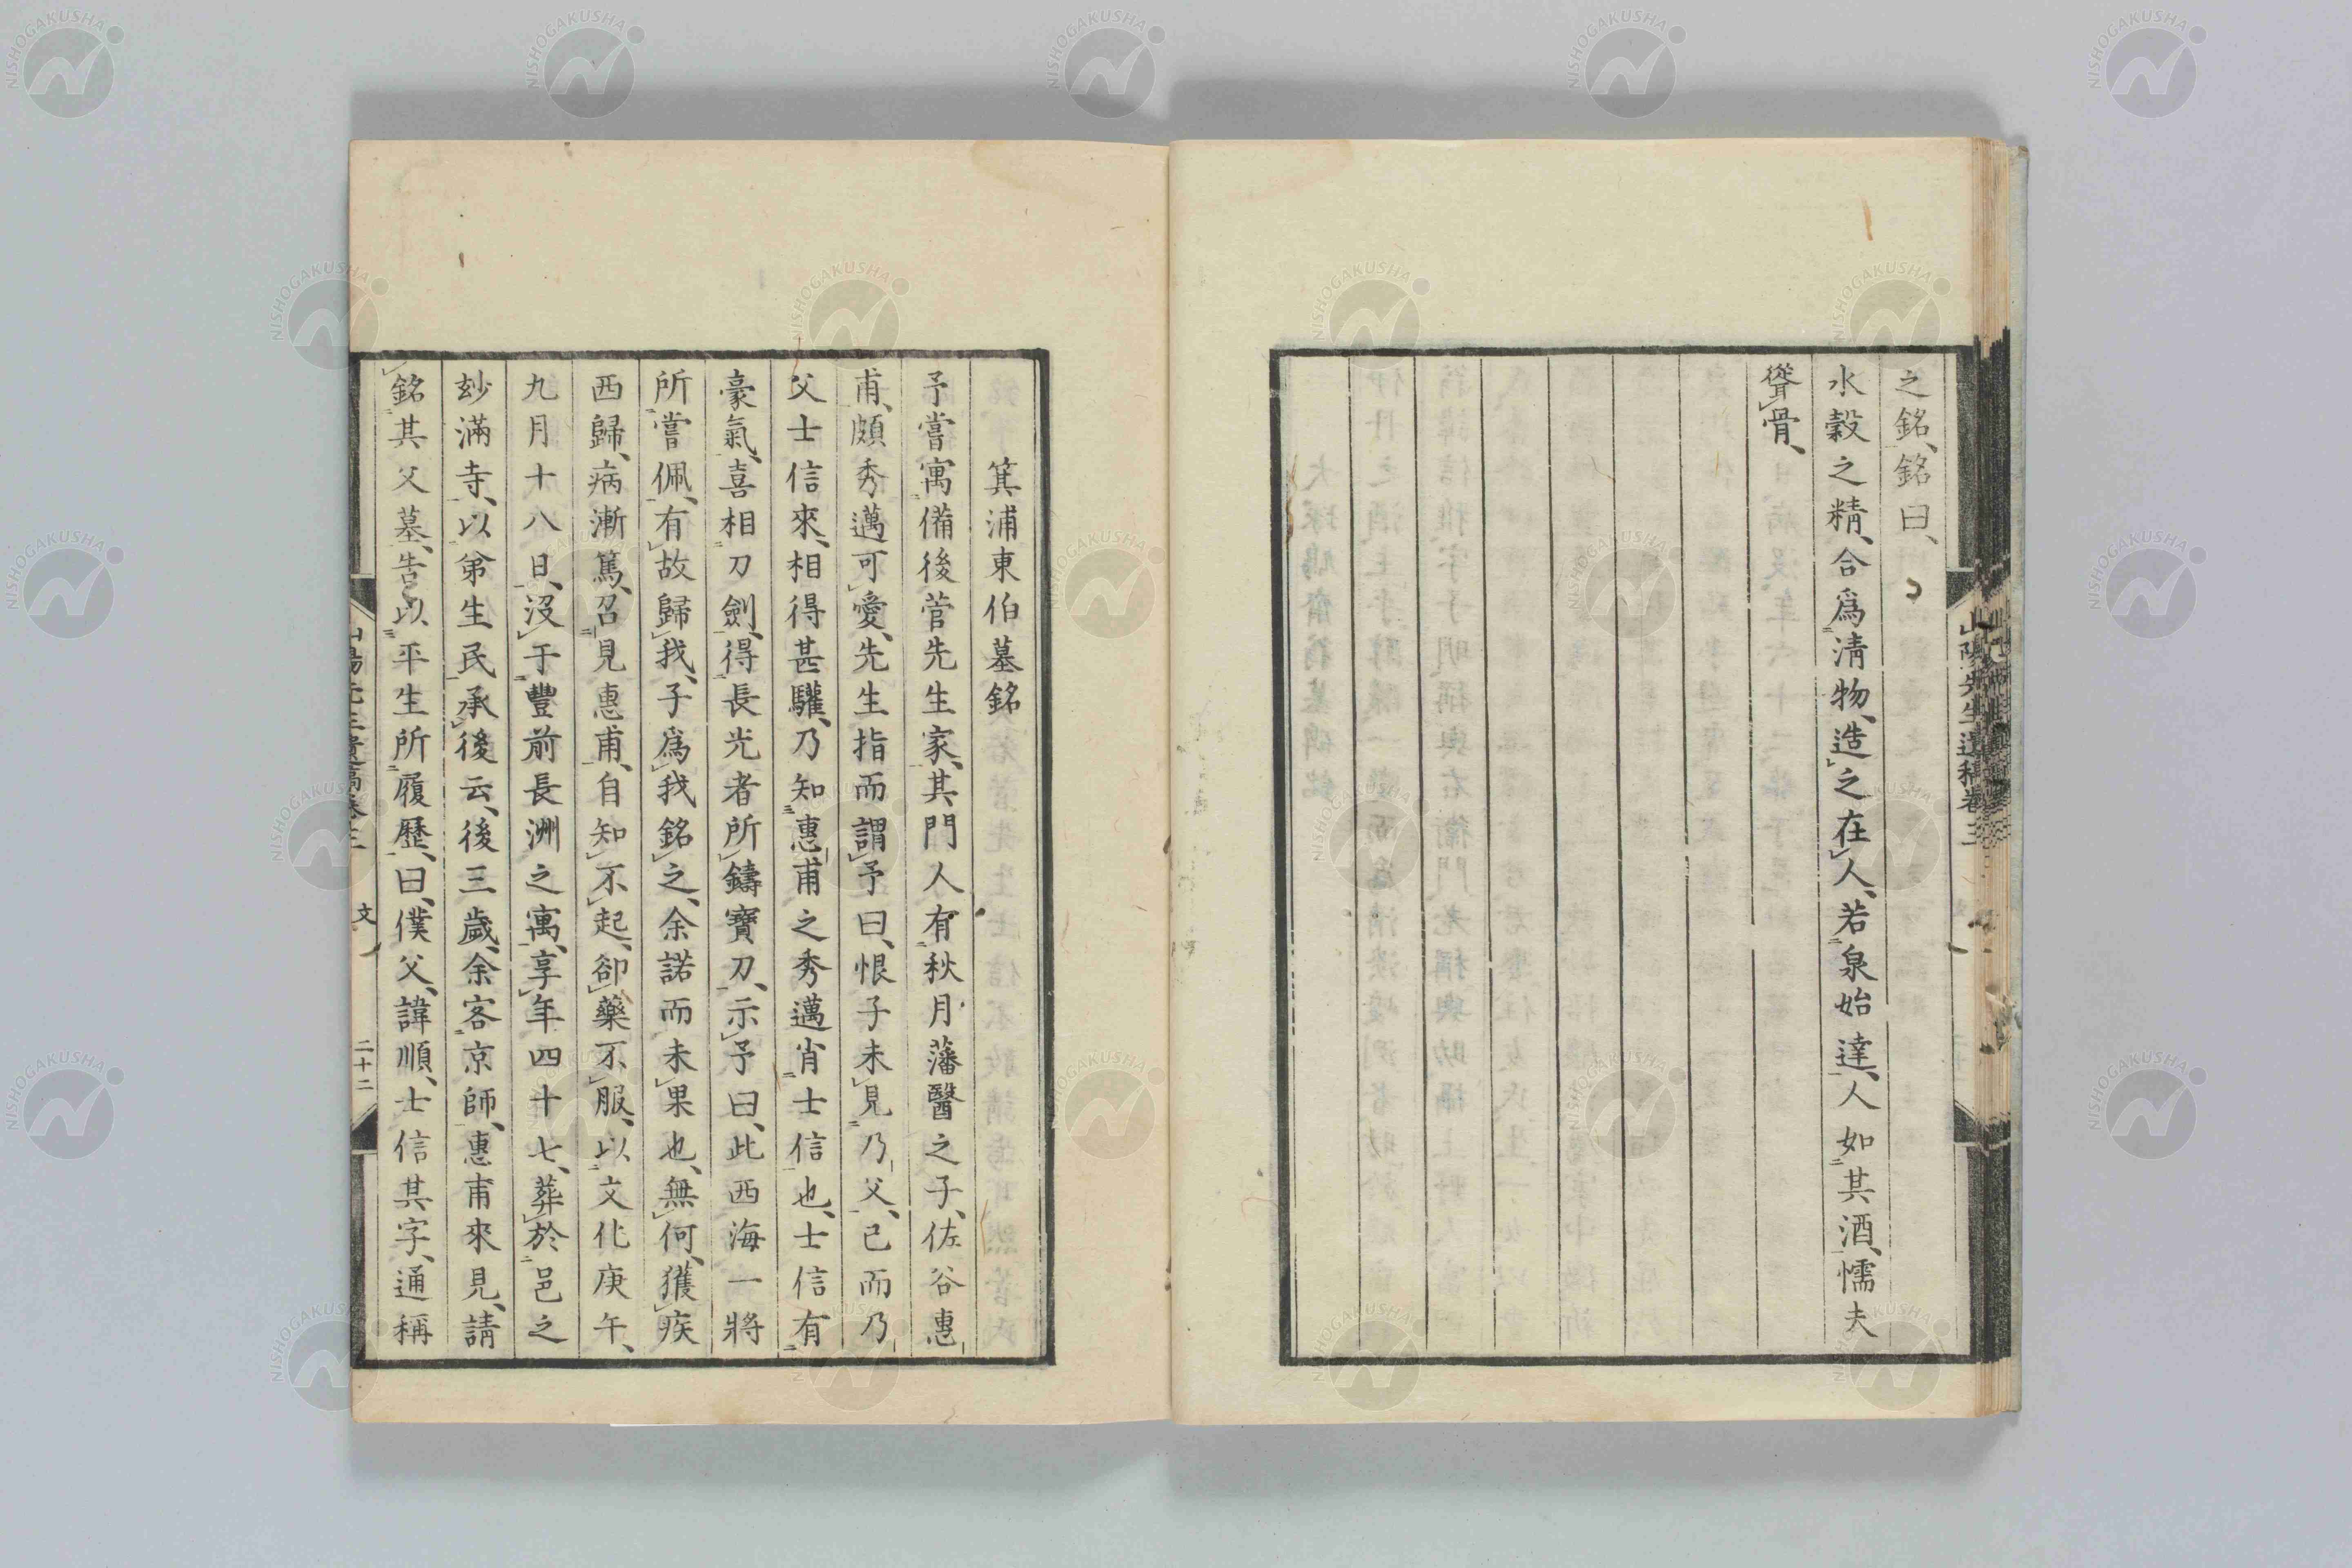 之銘、銘曰、
水穀之精、合爲淸物、造之在人、若泉始達、人如其酒、懦夫
聳骨、
山陽先生遺稿卷三
箕浦東伯墓銘
予嘗寓備後菅先生家、其門人有秋月藩醫之子、佐谷惠
甫、頗秀邁可愛、先生指而謂予曰、恨子未見乃父、已而乃
父士信來、相得甚驩、乃知惠甫之秀邁肖士信也、士信有
豪氣、喜相刀劍、得長光者所鑄寶刀、示予曰、此西海一將
所嘗佩、有故歸我、子爲我銘之、余諾而未果也、無何、獲疾
西歸、病漸篤、召見惠甫、自知不起、卻藥不服、以文化庚午、
九月十八日、沒于豐前長洲之寓、享年四十七、葬於邑之
玅滿寺、以弟生民、承後云、後三歲、余客京師、惠甫來見、請
銘其父墓、告以平生所履歷、曰、僕父、諱順、士信其字、通稱
山陽先生遺稿卷三 文 二十二
NISHOGAKUSHA